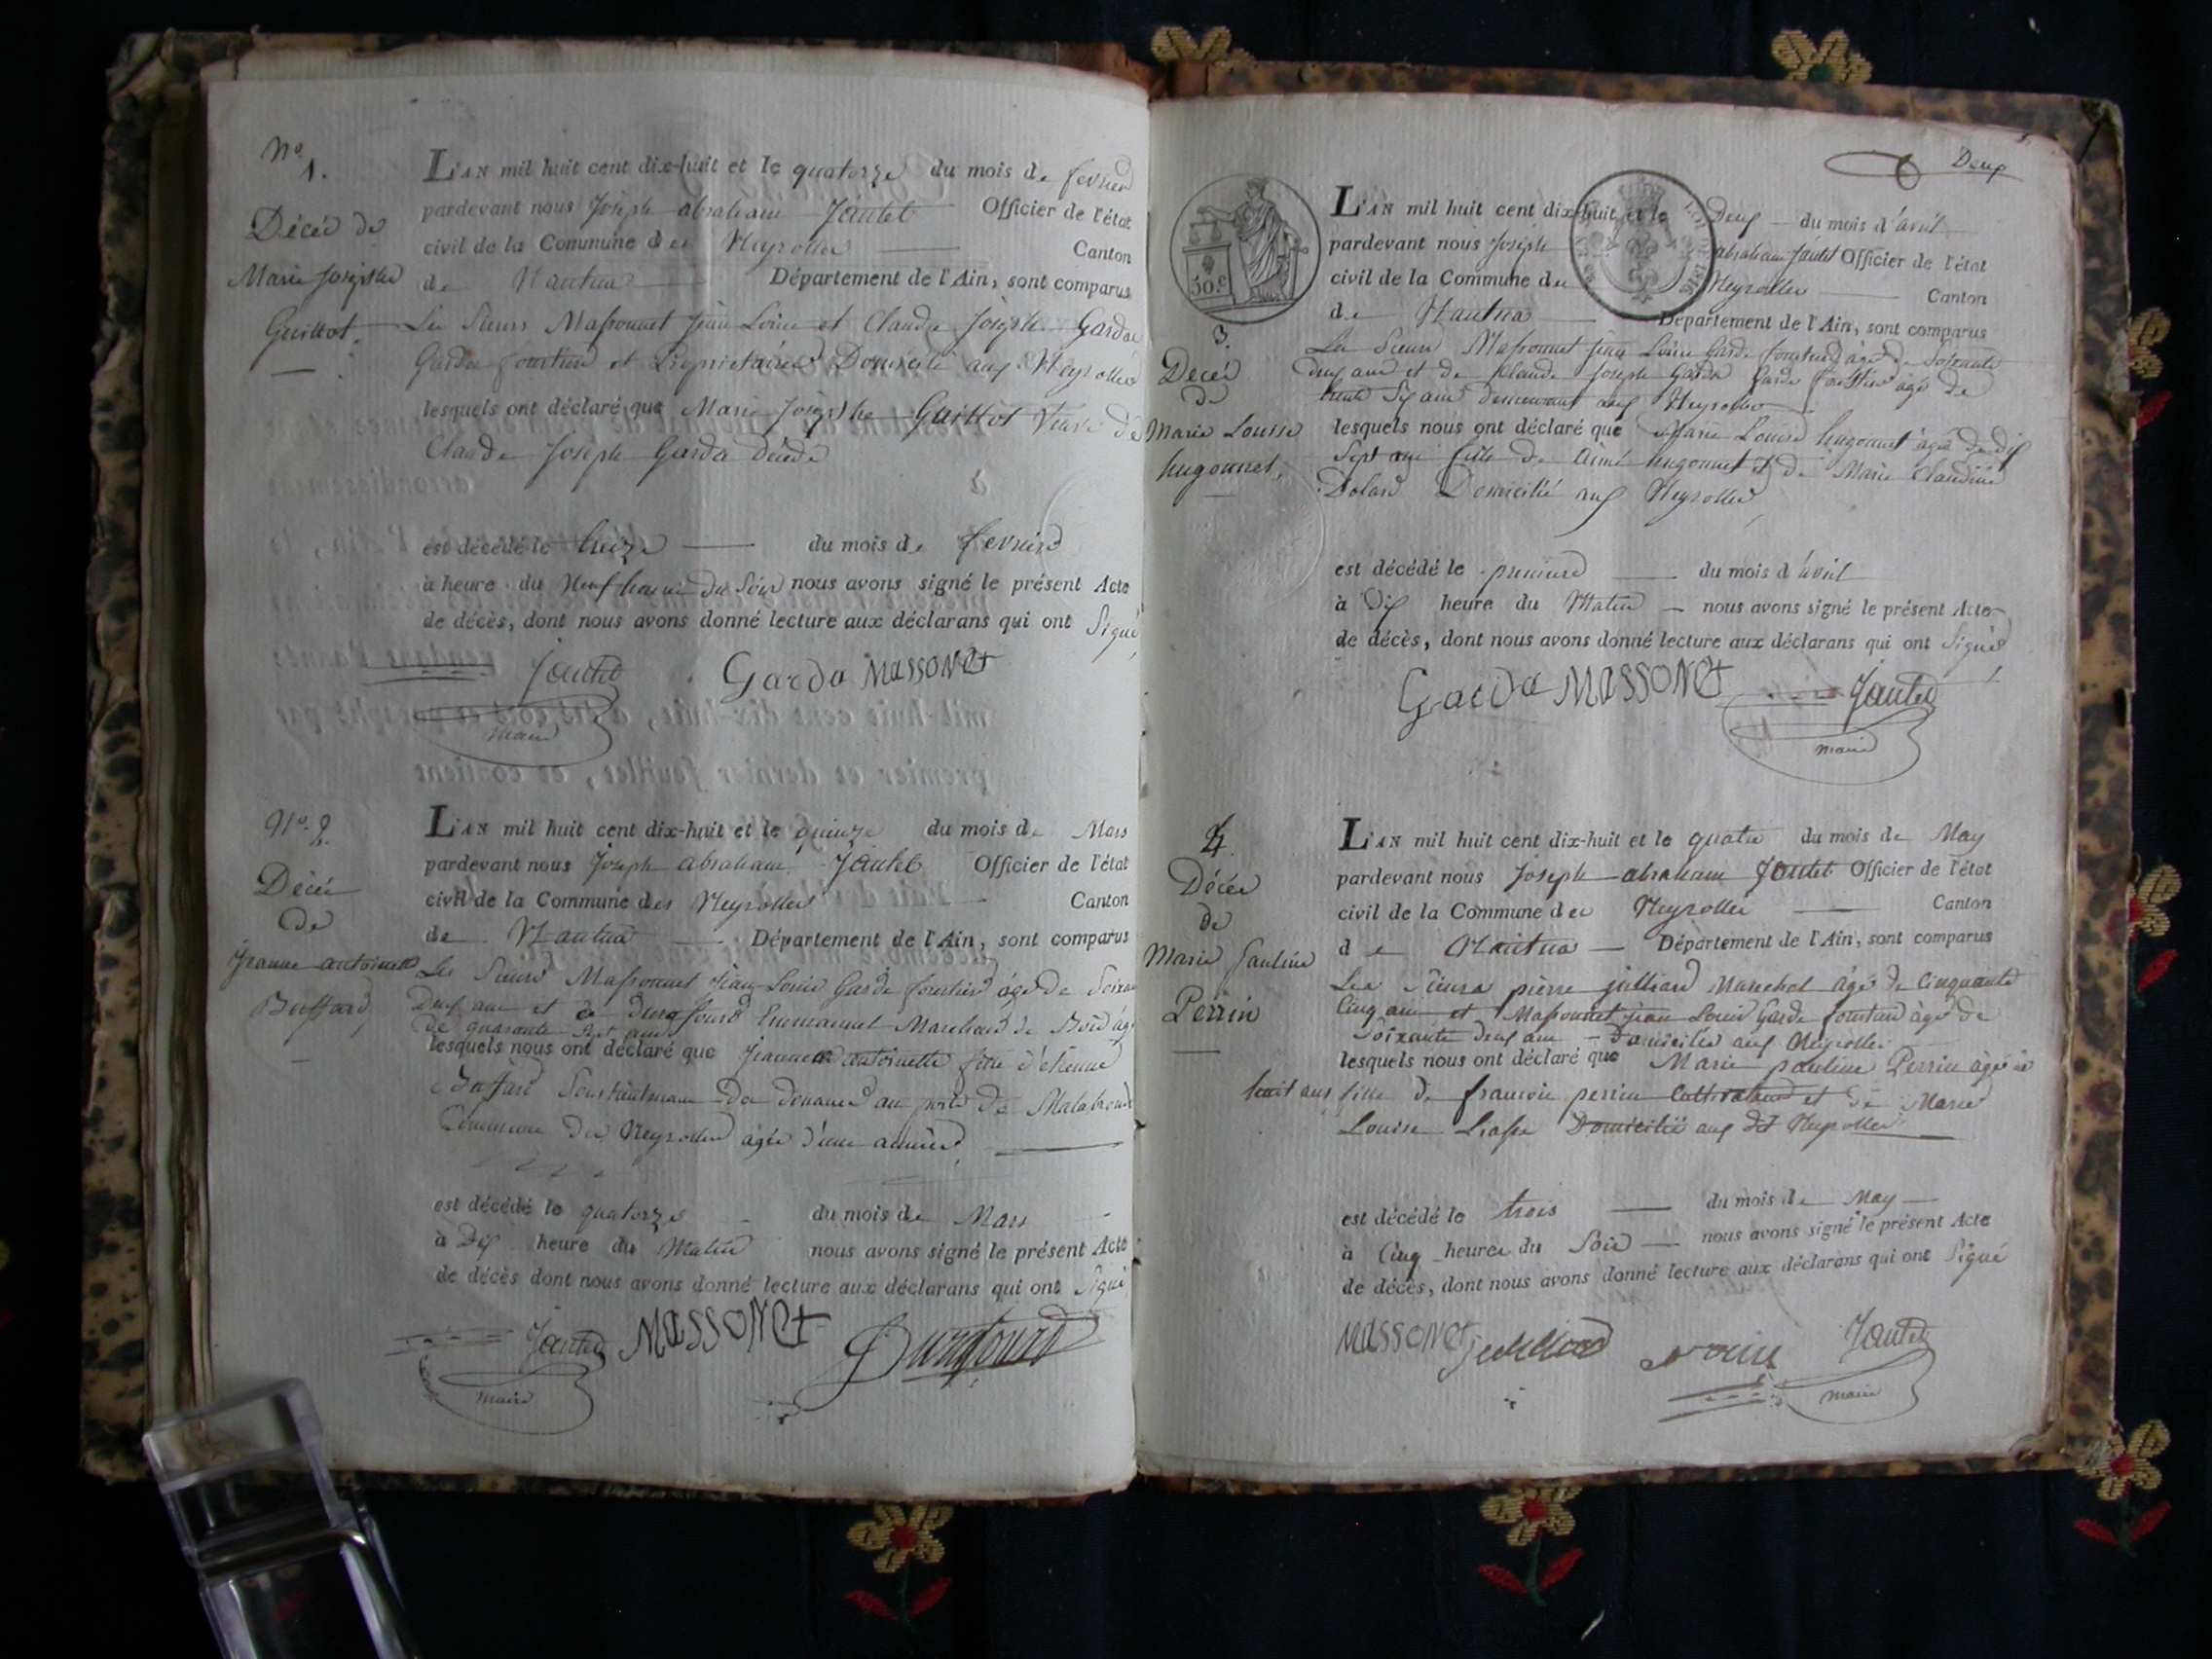 No
1.
Décés de
Marie Josephe
Guillot.
L'AN mil huit cent dix-huit et le quatorze du mois de fevrier
pardevant nous Joseph abraham Jantet Officier de l'état
civil de la Commune des Neyrolles Canton
de Nantua Département de l'Ain, sont comparus
Les Sieurs Massonnet Jean Louis et Claude Joseph Garda
Gardes forestier et Proprietaires Domicilié aux Neyrolles
lesquels ont déclaré que Marie Josephe Guillot Veuve de
Claude Joseph Garda décédé
est décédé le treize du mois de fevrier
à heure du Neuf heure du Soir nous avons signé le présent Acte
de décès, dont nous avons donné lecture aux déclarans qui ont Signé
Jantet Garda MASSONet
maire
No 2.
Décés
de
Jeanne antoinette
Buffard
L'AN mil huit cent dix-huit et le quinze du mois de Mars
pardevant nous Joseph abraham Jantet Officier de l'état
civil de la Commune des Neyrolles Canton
de Nantua Département de l'Ain, sont comparus
Les Sieurs Massonnet Jean Louis Garde forestier âgé de Soixante
Deux ans et Emmanuel Marchand de Bois âgé
de quarante Sept ans
lesquels nous ont déclaré que Jeanne antoinette fille d'étienne
Buffard Souslieutenant des douanes au poste de
Commune des Neyrolles agée d'une année
est décédé le quatorze du mois de Mars
à Dix heure du Matin nous avons signé le présent Acte
de décès dont nous avons donné lecture aux déclarans qui ont Signé
Jantet MASSONet
maire
Deux
50.c
3.
Décés
de
Marie Louise
hugonnet
L'AN mil huit cent dix-huit et le Deux du mois d'avril
pardevant nous Joseph abraham Jantet Officier de l'état
civil de la Commune des Neyrolles Canton
de Nantua Département de l'Ain, sont comparus
Les Sieurs Massonnet Jean Louis Garde forestier âgé de Soixante
deux ans et de Claude Joseph Garda Garde forestier âgé de
trente Six ans demeurant aux Neyrolles
lesquels nous ont déclaré que Marie Louise hugonnet âgé de dix
Sept ans fille de Aimé hugonnet et de Marie Claudine
Dolard Domicilié aux Neyrolles
est décédé le premier du mois d'avril
à Dix heure du Matin nous avons signé le présent Acte
de décès, dont nous avons donné lecture aux déclarans qui ont Signé
Garda MASSONet Jantet
maire
4.
Décés
de
Marie Pauline
Perrin
L'AN mil huit cent dix-huit et le quatre du mois de May
pardevant nous Joseph abraham Jantet Officier de l'état
civil de la Commune des Neyrolles Canton
de Nantua Département de l'Ain, sont comparus
Les Sieurs pierre juilliard Marechal âgé de Cinquante
Cinq ans et Massonnet Jean Louis Garde forestier âgé de
Soixante deux ans Domiciliés aux Neyrolles
lesquels nous ont déclaré que Marie pauline Perrin âgée de
huit ans fille de françois perrin Cultivateur et de Marie
Louise Domicilié aux dit Neyrolles
est décédé le trois du mois de May
à Cinq heures du Soir nous avons signé le présent Acte
de décès, dont nous avons donné lecture aux déclarans qui ont Signé
MASSONet Jantet
maire